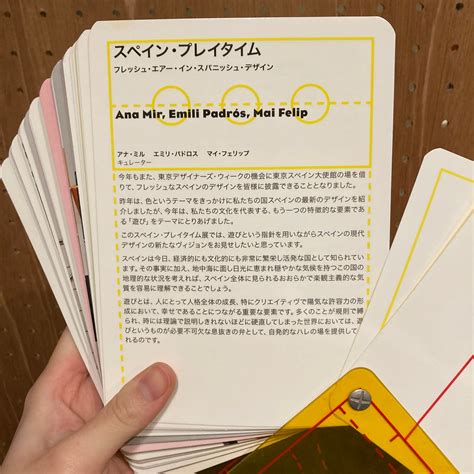 スペイン・プレイタイム
フレッシュ・エアー・イン・スパニッシュ・デザイン
Ana Mir, Emili Padrós, Mai Felip
アナ・ミル　エミリ・パドロス　マイ・フェリップ
キュレーター
今年もまた、東京デザイナーズ・ウィークの機会に東京スペイン大使館の場を借
りて、フレッシュなスペインのデザインを皆様に披露できることとなりました。
昨年は、色というテーマをきっかけに私たちの国スペインの最新のデザインを紹
介しましたが、今年は、私たちの文化を代表する、もう一つの特徴的な要素であ
る「遊び」をテーマにとりあげました。
このスペイン・プレイタイム展では、遊びという指針を用いながらスペインの現代
デザインの新たなヴィジョンをお見せしたいと思っています。
スペインは今日、経済的にも文化的にも非常に繁栄し活発な国として知られてい
ます。その事実に加え、地中海に面し日光に恵まれ穏やかな気候を持つこの国の
地理的な状況を考えれば、スペイン全体に見られるおおらかで楽観主義的な気
質を容易に理解できることでしょう。
遊びとは、人にとって人格全体の成長、特にクリエイティヴで陽気な許容力の形
成において、幸せであることにつながる重要な要素です。多くのことが規則で縛
られ、時には理論で説明しきれないほどに硬直してしまった世界においては、遊
びというものが必要不可欠な息抜きの弁として、自発的なハレの場を提供してく
れるのです。